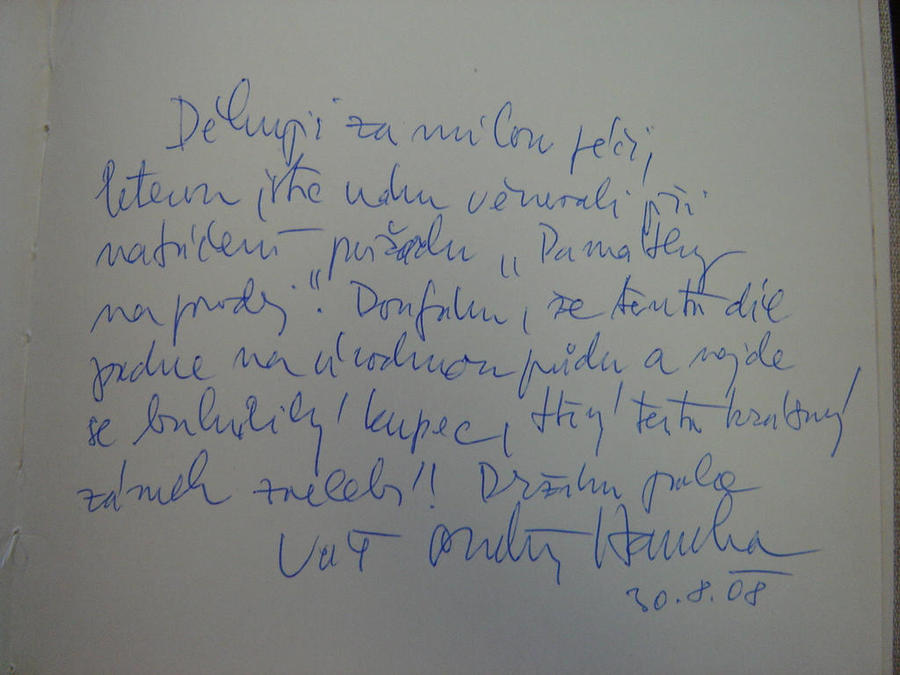 Děkuji za milou péči,
kterou jste nám věnovali při
natáčení pořadu „Památky
na prodej". Doufám, že tento díl
padne na úrodnou půdu a najde
se bohulibý kupec, který tento krásný
zámek zvelebí! Držím palce
Váš Ondřej Havelka
30.8.08